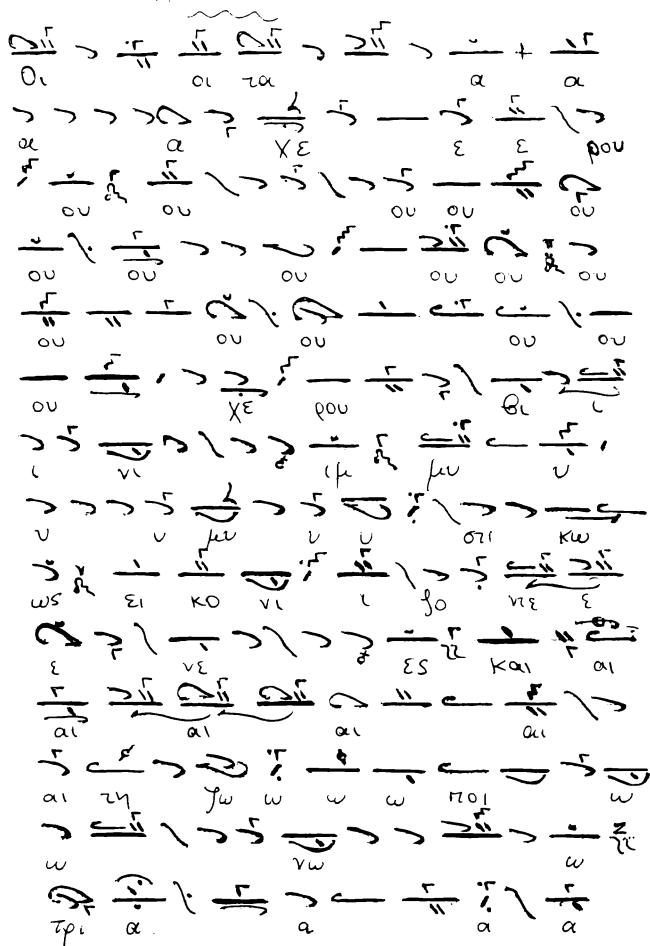 Οι οι τα α α
α α χε ε ε ρου
ου ου ου ου ου
ου ου ου ου ου ου
ου ου ου ου ου
ου χε ρου βι ι
ι νι ιμ μυ υ
υ υ μυ υ υ στι κω
ως ει κο νι ι ζο ντε ε
ε νε ες και αι
αι αι αι αι
αι τη ζω ω ω ω ποι ω
ω νω ω
τρι α α α α